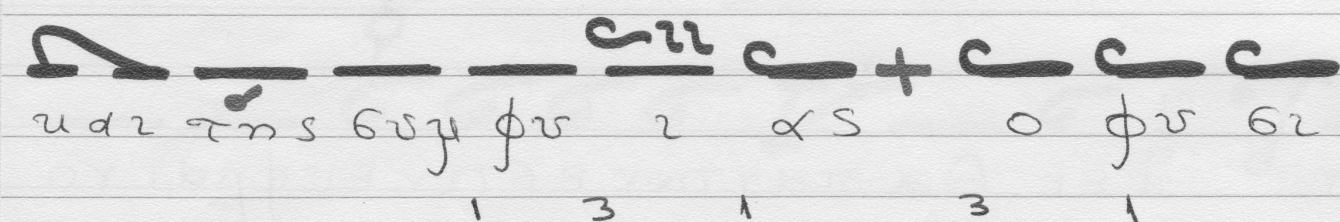 και της συμ φυ ι ας + ο φυ σι
1 3 1 3 1